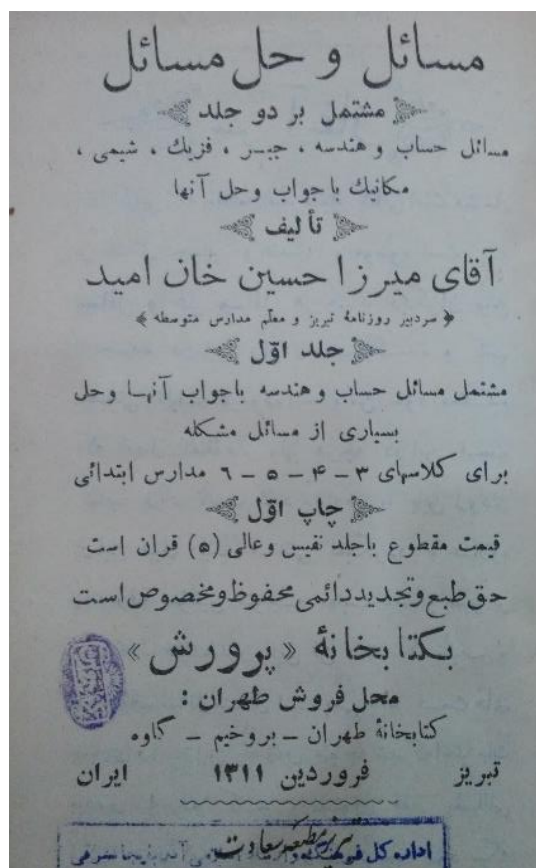 مسائل و حل مسائل
مشتمل بر دو جلد
مسائل حساب و هندسه ، جبر ، فزيك ، شيمى ،
مكانيك با جواب وحل آنها
تأليف
آقاى ميرزا حسين خان اميد
﴿ سردبير روزنامهٔ تبريز و معلّم مدارس متوسطه ﴾
جلد اوّل
مشتمل مسائل حساب و هندسه باجواب آنهـا وحل
بسيارى از مسائل مشكله
براى كلاسهاى ۳ ـ ۴ ـ ۵ ـ ٦ مدارس ابتدائى
چاپ اوّل
قيمت مقطوع باجلد نفيس وعالى (۵) قران است
حق طبع و تجديد دائمى محفوظ و مخصوص است
بكتابخانهٔ « پرورش »
محل فروش طهران :
كتابخانهٔ طهران ـ بروخيم ـ كاوه
تبريز فروردين ۱۳۱۱ ايران
اداره كل